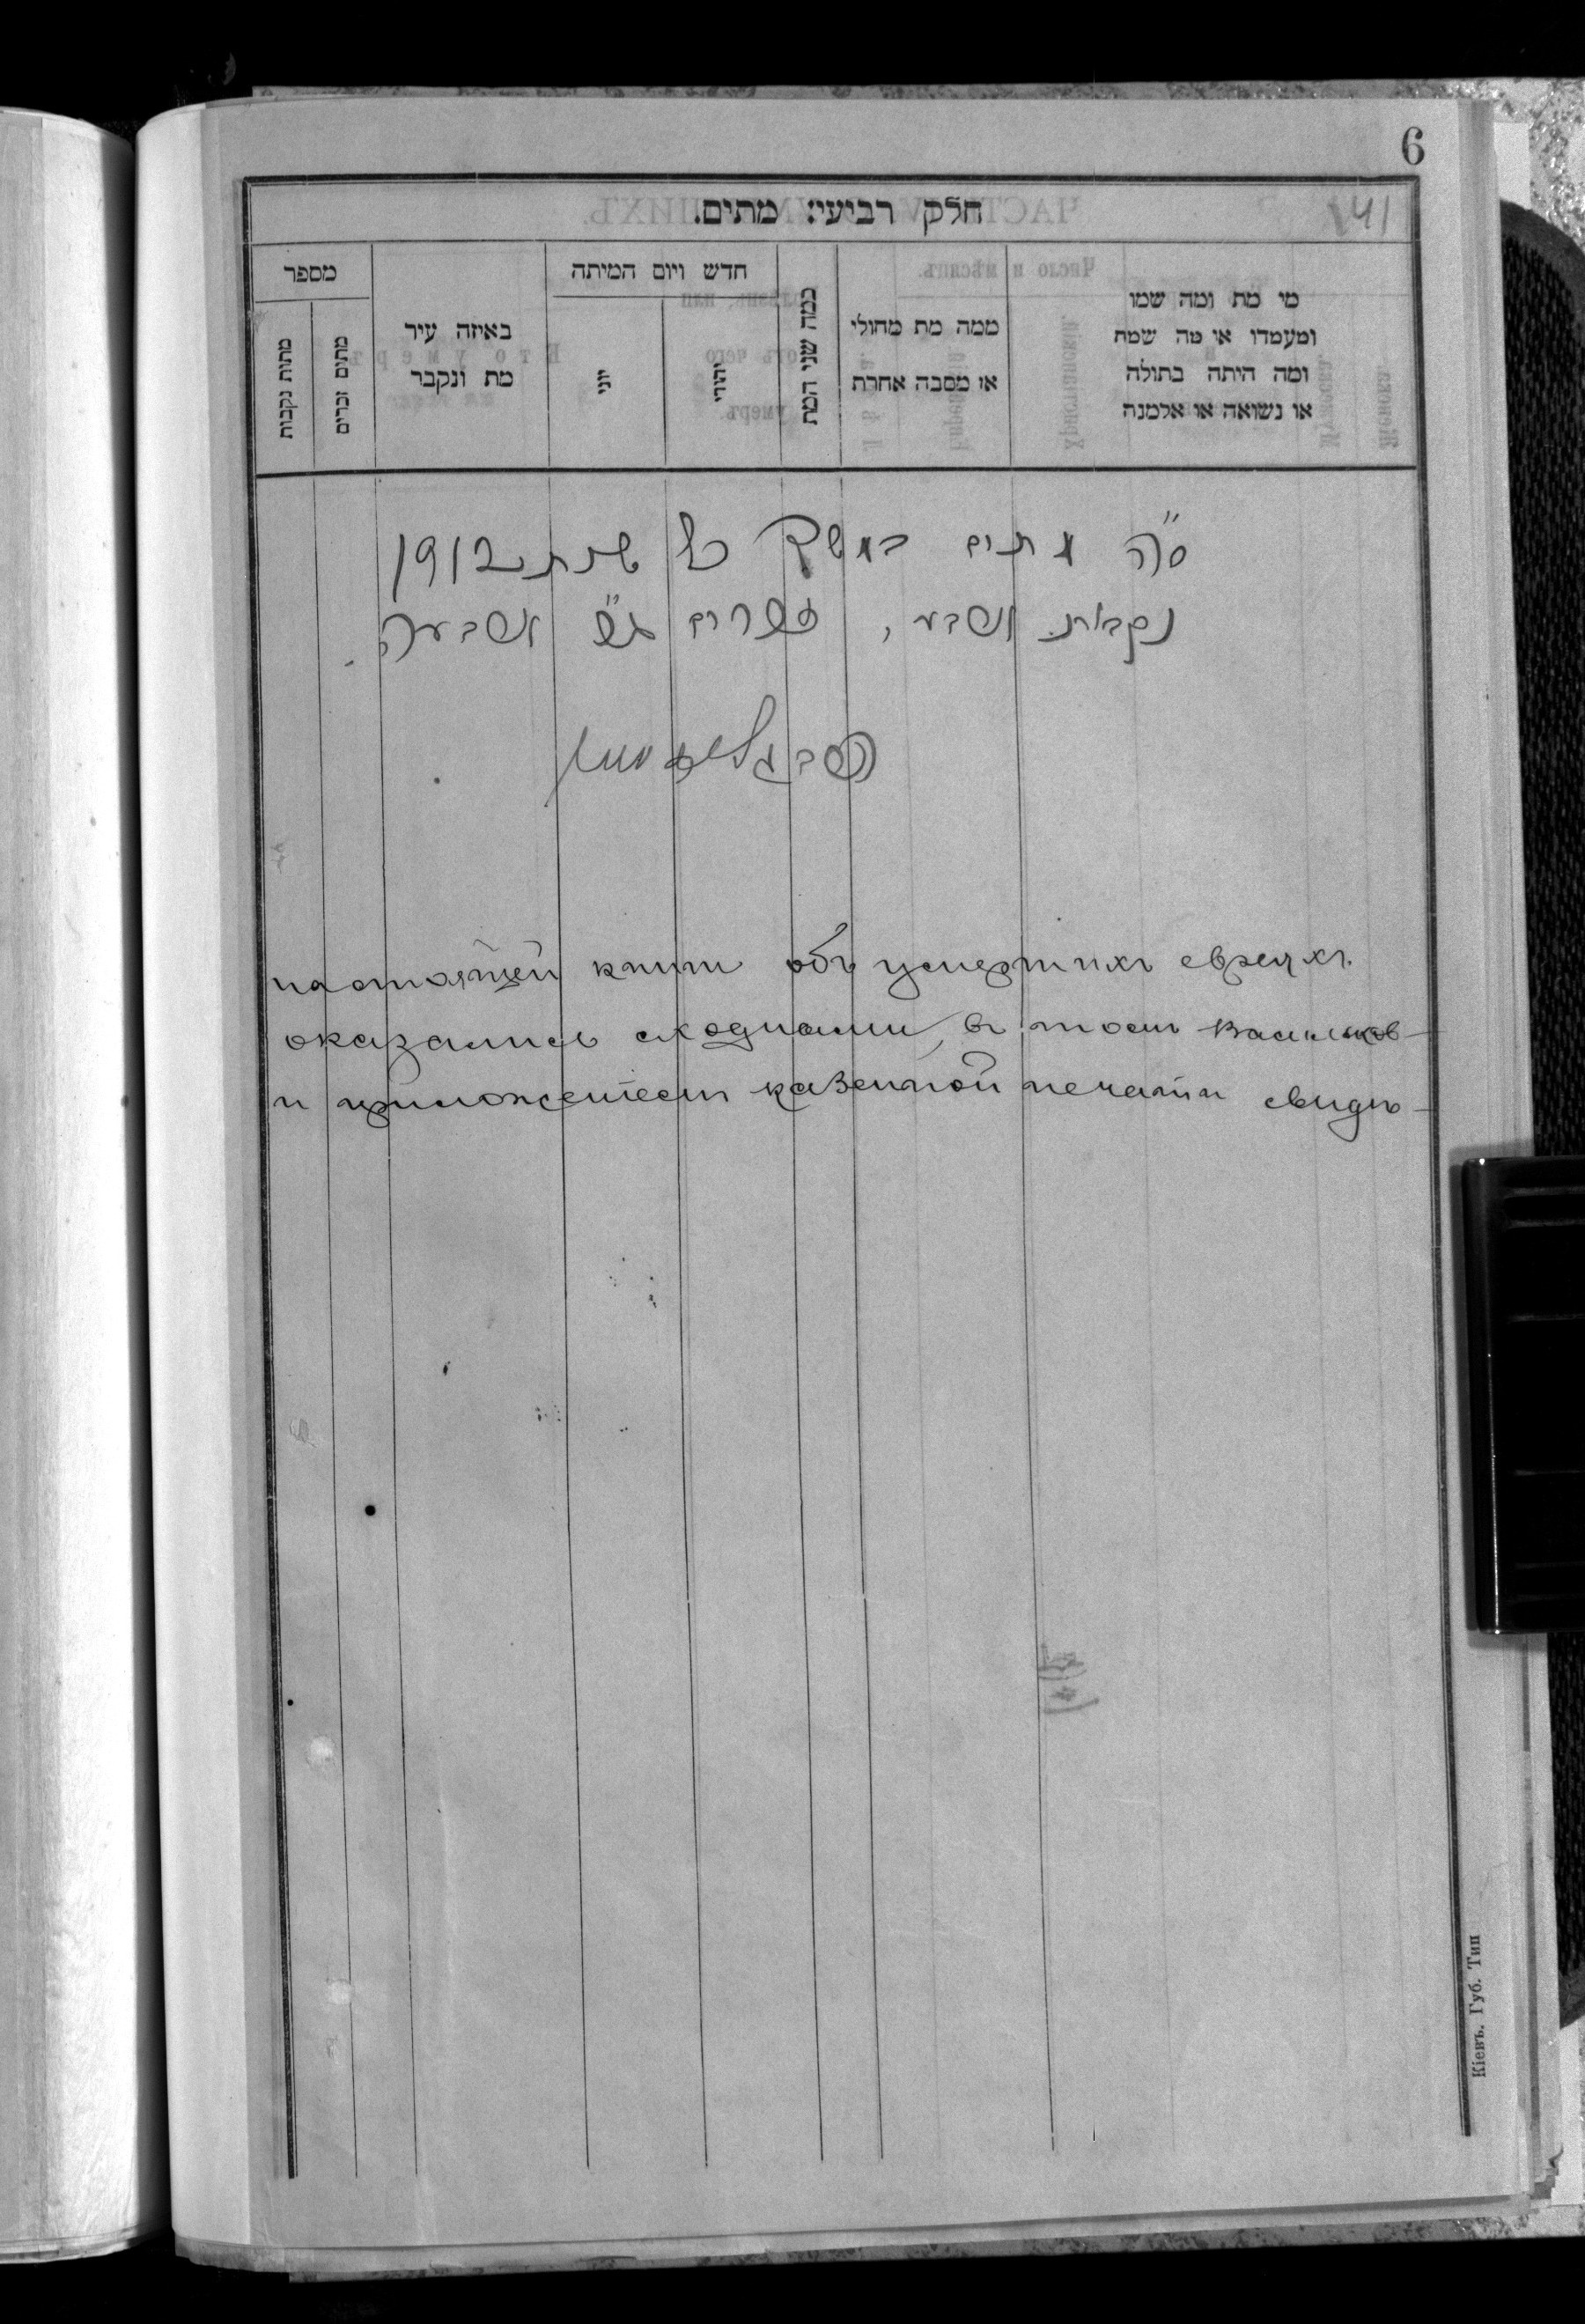 6
141
חלק רביעי: מתים.
מי מת ומה שמו
ומעמדו או מה שמה
ומה היתה בתולה
או נשואה או אלמנה
ממה מת מחולי
או מסבה אחרת
כמה שני המת
חדש ויום המיתה
יהודי
יוני
באיזה עיר
מת ונקבר
מספר
מתים זכרים
מתות נקבות
ס״ה מתים במשך כל שנת 1912
נקבות ושבע, עשרים
настоящей книги объ умершихъ евреяхъ
оказались сходными, въ томъ Васильков-
и приложеніемъ казенной печати свидѣ-
Кіевъ. Губ. Тип